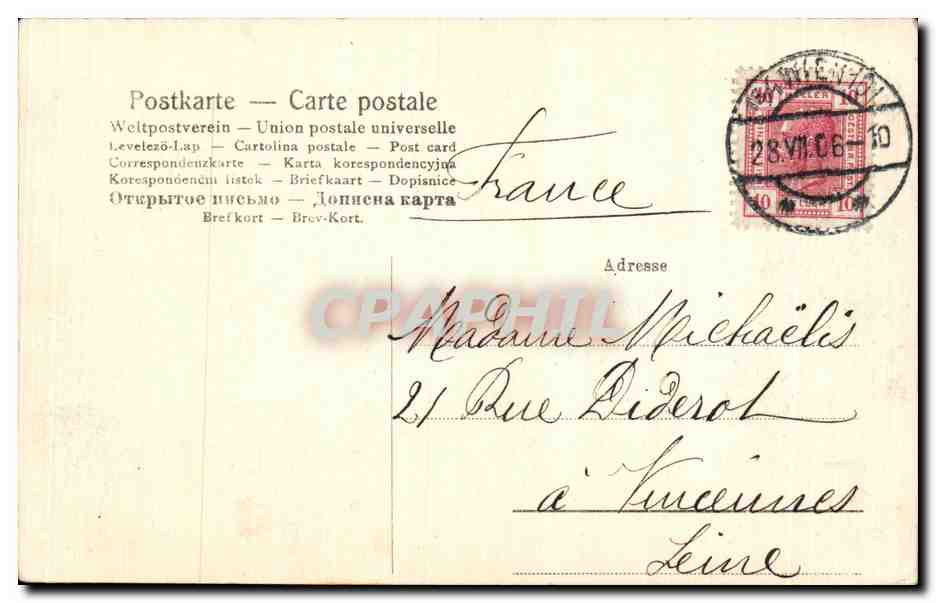 Postkarte — Carte postale
Weltpostverein — Union postale universelle
Levelezö-Lap — Cartolina postale — Post card
Correspondenzkarte — Karta korespondencyjna
Korespondenční listek — Briefkaart — Dopisnice
Открытое письмо — Дописна карта
Brefkort — Brev-Kort.
France
10 10
28.VII.06-10
10 10
Adresse
CPAPHIL
Madame Michaëlis
21 Rue Diderot
à Vincennes
Seine